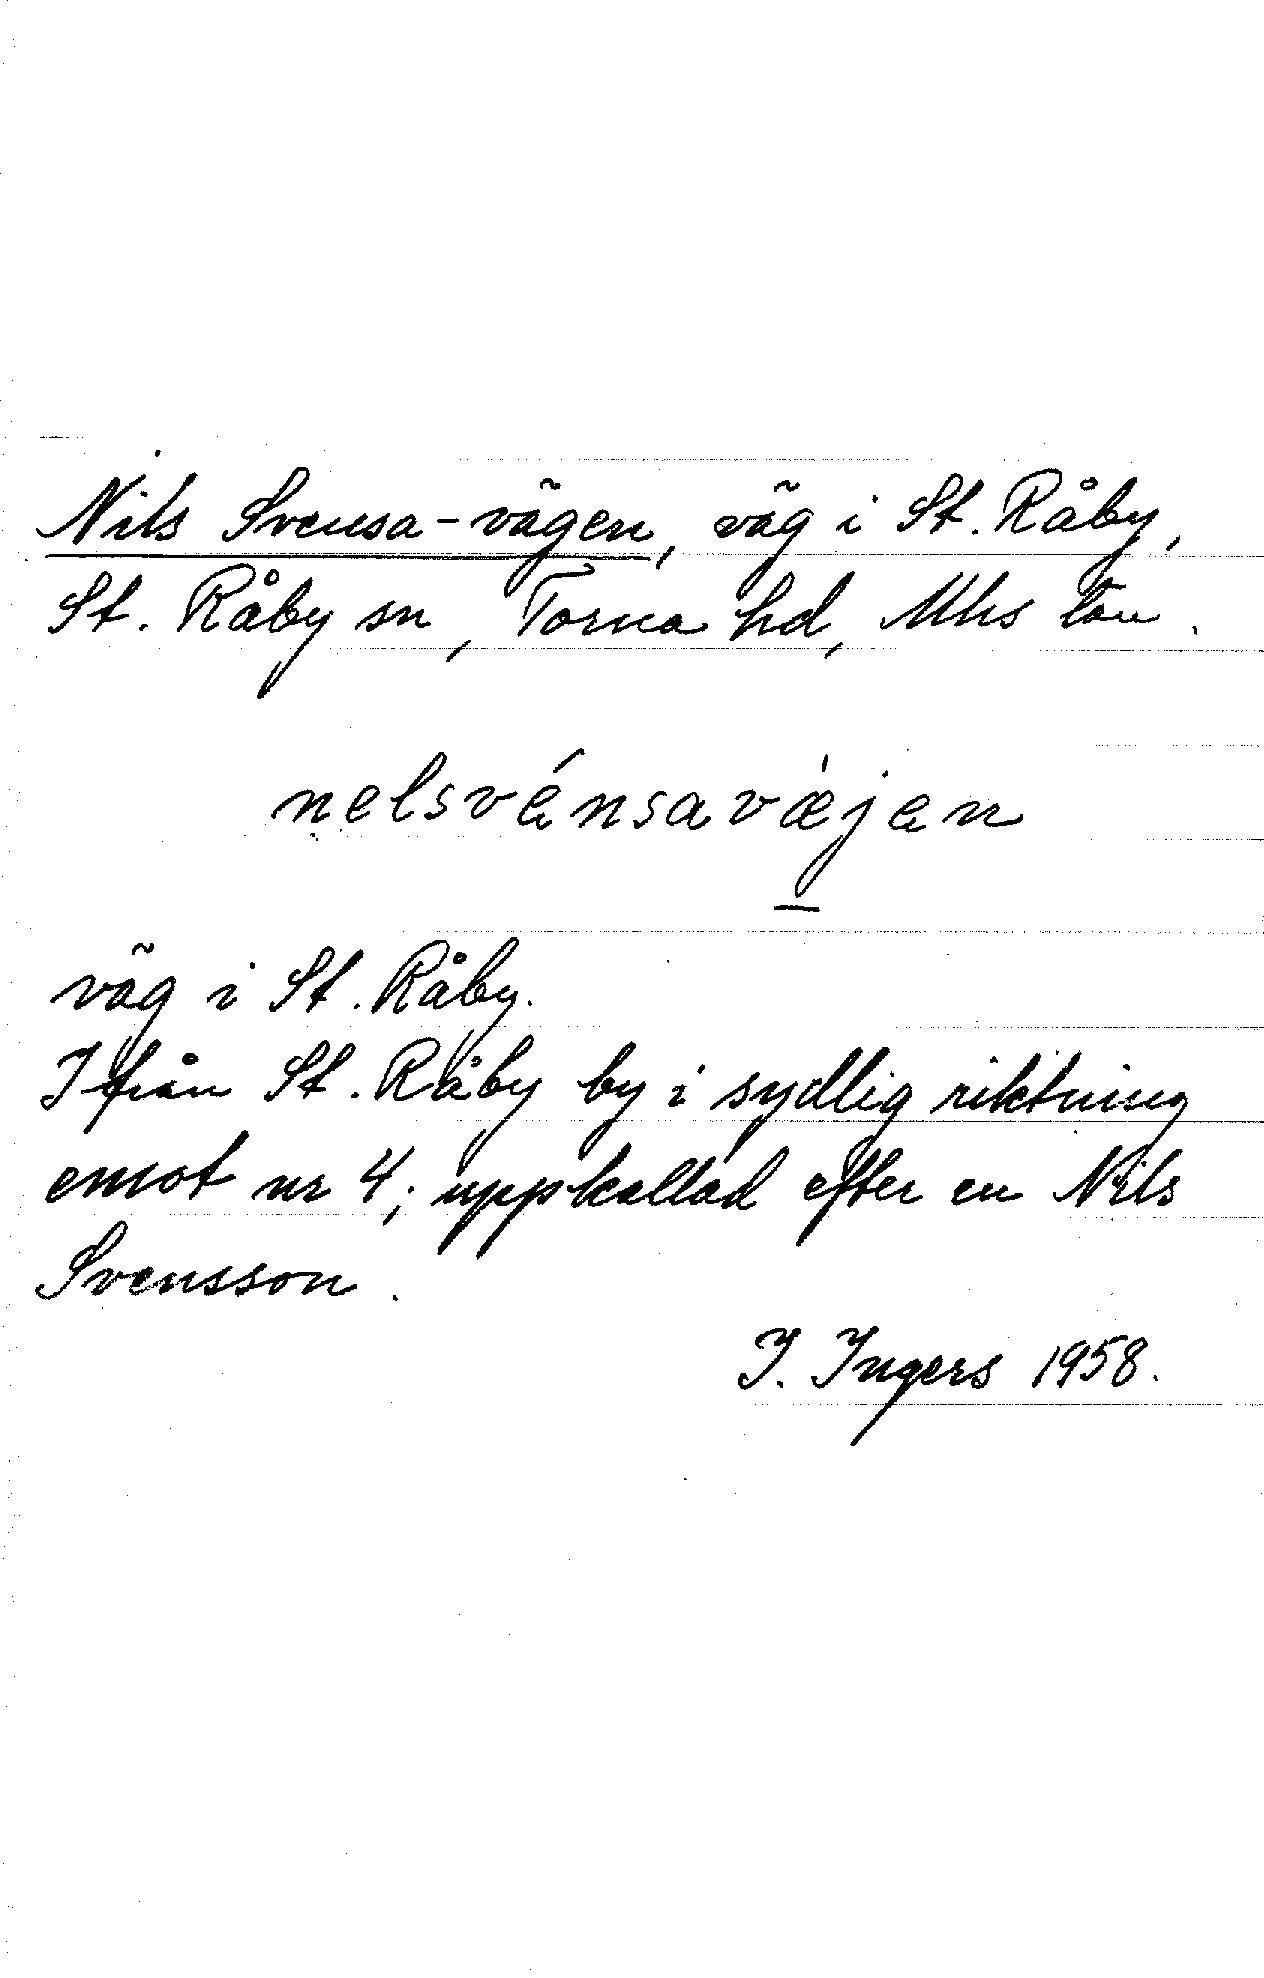 Nils Svensa-vägen, väg i St. Råby,
St. Råby sn, Torna hd, Mhs län.
nelsvénsavæ̀jen
väg i St. Råby.
Ifrån St. Råby by i sydlig riktning
emot nr 4; uppkallad efter en Nils
Svensson.
I. Ingers 1958.